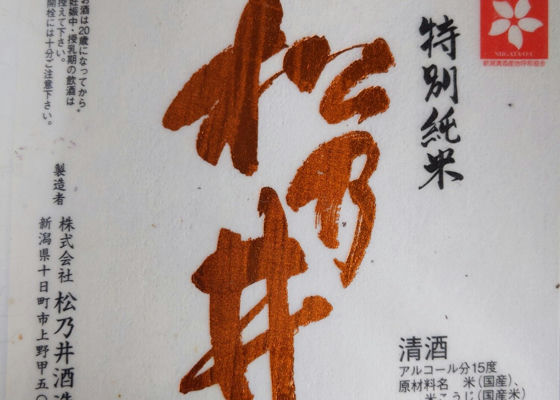 新潟清酒産地呼称協会
特別純米
松乃井
清酒
アルコール分15度
原材料名 米(国産)、
米こうじ(国産米)
お酒は20歳になってから。
妊娠中・授乳期の飲酒は
控えて下さい。
開栓には十分ご注意下さい。
製造者 株式会社 松乃井酒造
新潟県十日町市上野甲五〇